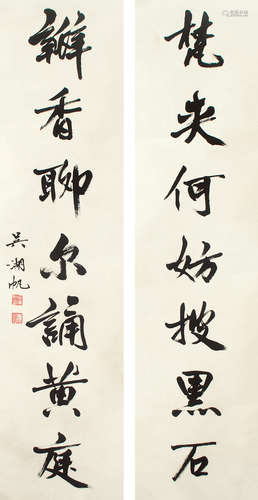 梵夾何妨搜黑石
瓣香聊尔誦黄庭
吴湖帆